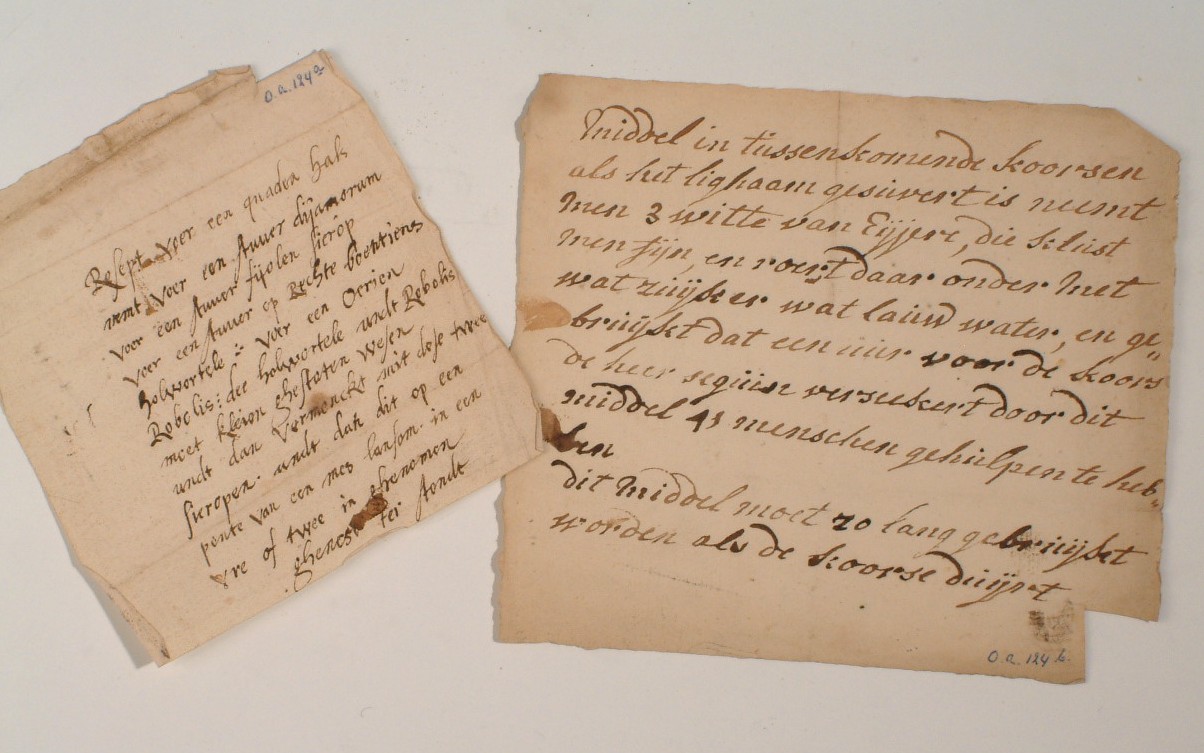 O.a. 124a
Resept voer een quaden hals
nemt voer een stuver dijamorum
voer een stuver fijolen sierop
voer een stuver op Rechte boentiens
holwortele :- voer een Oerien
Robolis: dee holwortele undt Robolis
moet kleron ghestoten wesen
undt dan vermenckt mit dese twee
sieropen. undt dan dit op een
pente van een mes lansom. in een
vre of twee in ghenomen
ghenest ter stondt
Middel in tüssenkomende koorsen
als het lighaam gesüvert is neemt
men 3 witte van Eijjere, die klust
men fijn, en roert daar onder met
wat zuijker wat lauw water, en ge„
bruijkt dat een uür voor de koors
de heer seguin verseekert door dit
middel 43 menschen gehülpen te heb„
ben
dit middel moet zo lang gebruijkt
worden als de koorse duijrt
O.a. 124b.